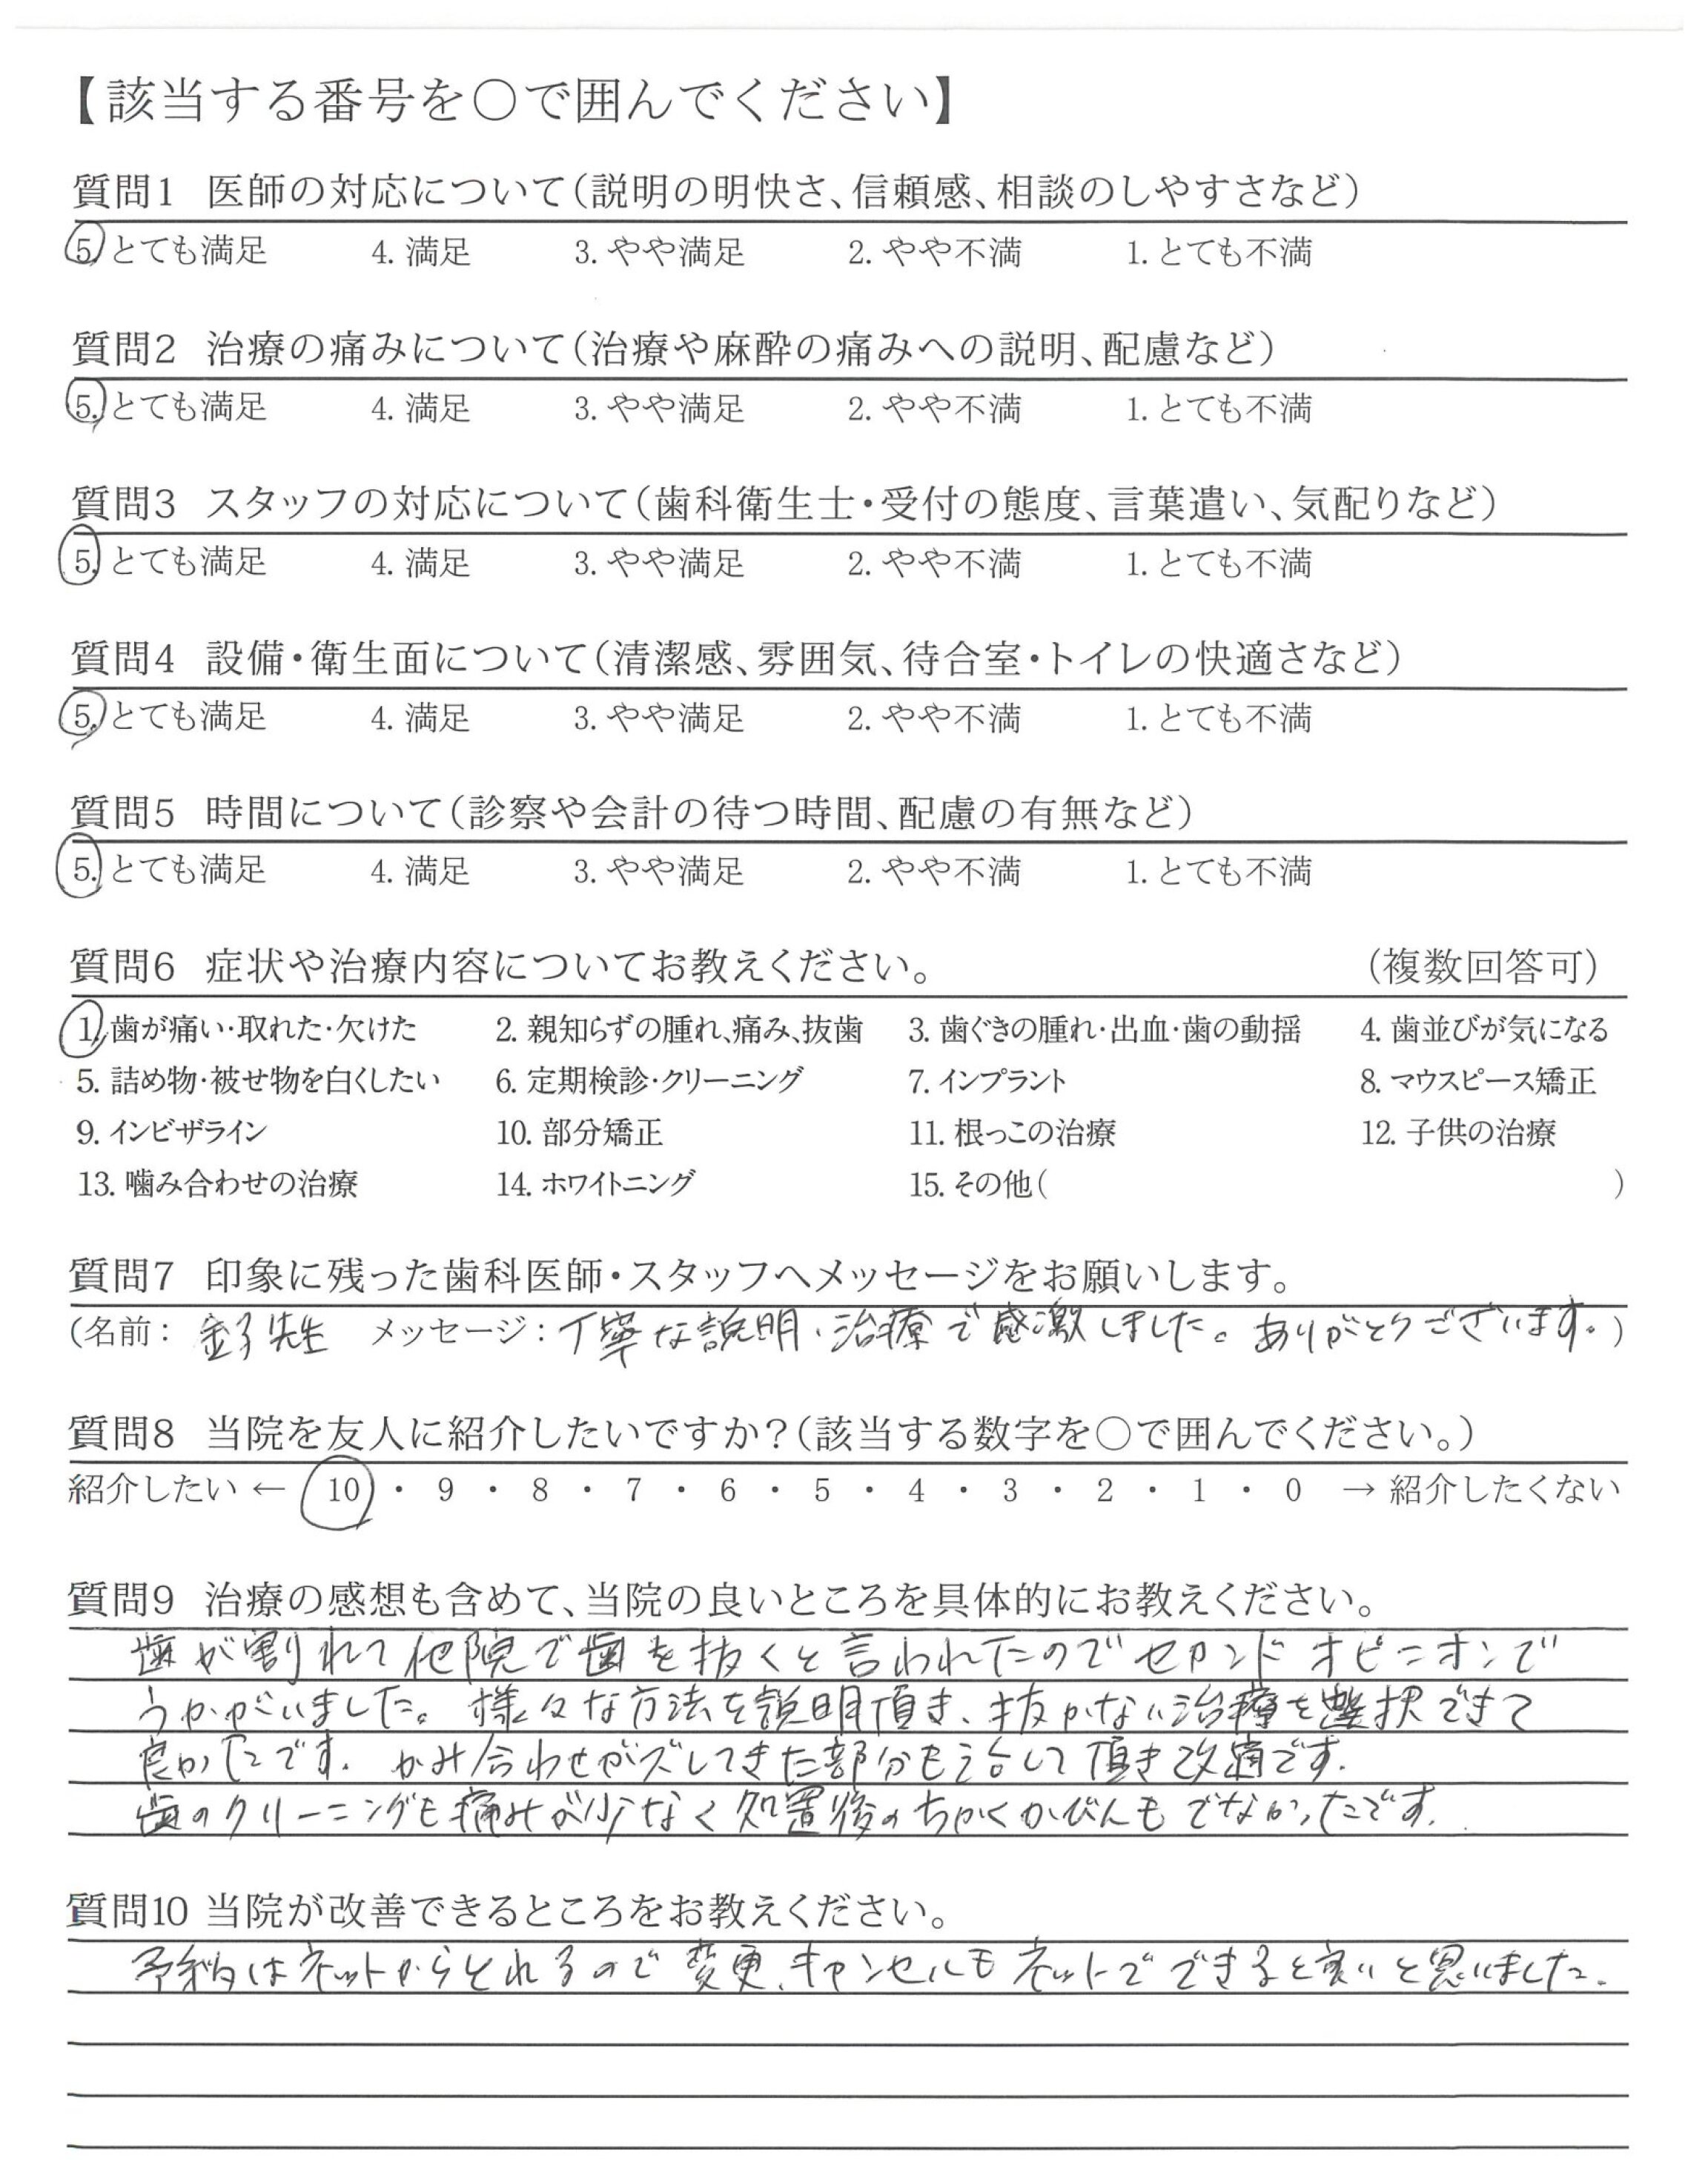 【該当する番号を〇で囲んでください】
質問1 医師の対応について(説明の明快さ、信頼感、相談のしやすさなど)
5. とても満足 4. 満足 3. やや満足 2. やや不満 1. とても不満
質問2 治療の痛みについて(治療や麻酔の痛みへの説明、配慮など)
5. とても満足 4. 満足 3. やや満足 2. やや不満 1. とても不満
質問3 スタッフの対応について(歯科衛生士・受付の態度、言葉遣い、気配りなど)
5. とても満足 4. 満足 3. やや満足 2. やや不満 1. とても不満
質問4 設備・衛生面について(清潔感、雰囲気、待合室・トイレの快適さなど)
5. とても満足 4. 満足 3. やや満足 2. やや不満 1. とても不満
質問5 時間について(診察や会計の待つ時間、配慮の有無など)
5. とても満足 4. 満足 3. やや満足 2. やや不満 1. とても不満
質問6 症状や治療内容についてお教えください。 (複数回答可)
1. 歯が痛い・取れた・欠けた 2. 親知らずの腫れ、痛み、抜歯 3. 歯ぐきの腫れ・出血・歯の動揺 4. 歯並びが気になる
5. 詰め物・被せ物を白くしたい 6. 定期検診・クリーニング 7. インプラント 8. マウスピース矯正
9. インビザライン 10. 部分矯正 11. 根っこの治療 12. 子供の治療
13. 噛み合わせの治療 14. ホワイトニング 15. その他( )
質問7 印象に残った歯科医師・スタッフへメッセージをお願いします。
(名前: 金子先生 メッセージ: 丁寧な説明、治療で感激しました。ありがとうございます。)
質問8 当院を友人に紹介したいですか?(該当する数字を〇で囲んでください。)
紹介したい ← 10 ・ 9 ・ 8 ・ 7 ・ 6 ・ 5 ・ 4 ・ 3 ・ 2 ・ 1 ・ 0 → 紹介したくない
質問9 治療の感想も含めて、当院の良いところを具体的にお教えください。
歯が割れて他院で歯を抜くと言われたのでセカンドオピニオンで
うかがいました。様々な方法を説明頂き、抜かない治療を選択できて
良かったです。かみ合わせがズレてきた部分も治して頂き改適です。
歯のクリーニングも痛みが少なく処置後のちかくかびんもでなかったです。
質問10 当院が改善できるところをお教えください。
予約はネットからとれるので変更、キャンセルもネットでできると良いと思いました。